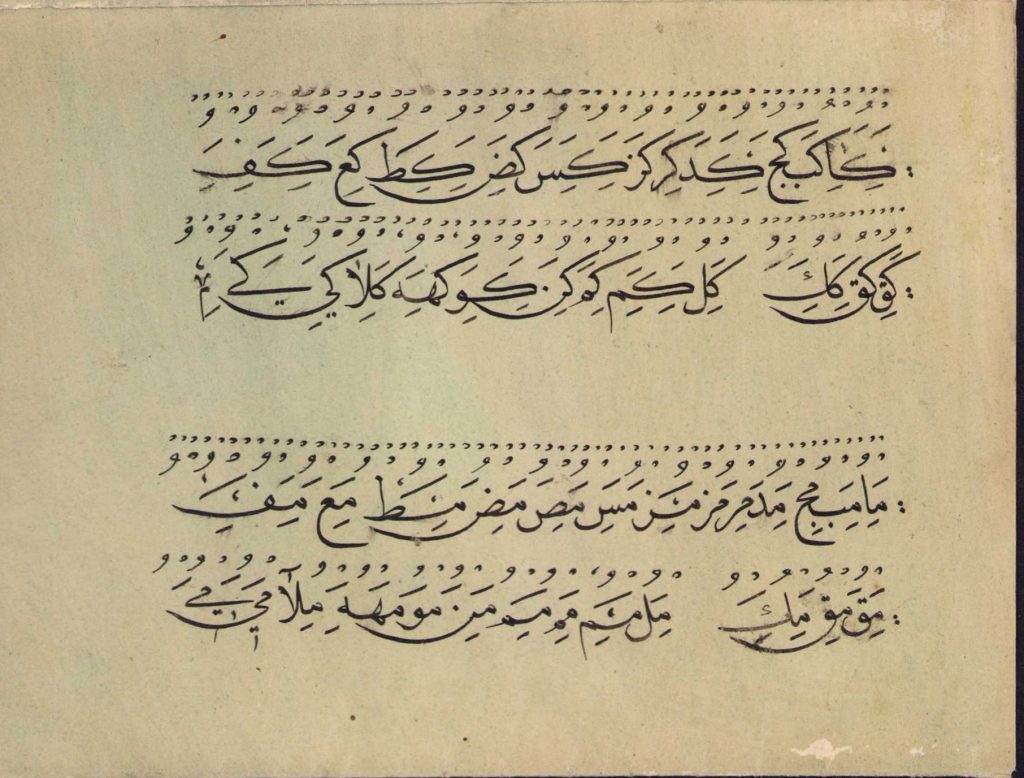 كا كب كج كد كر كز كس كض كط كع كف
كق كق كك كل كم كم كن كو كهه كلا كي كے
ما مب مج مد مر مز مز مس مص مض مط مع مف
مق مق مك مل مم مم مم من مو مهه ملا مي مے